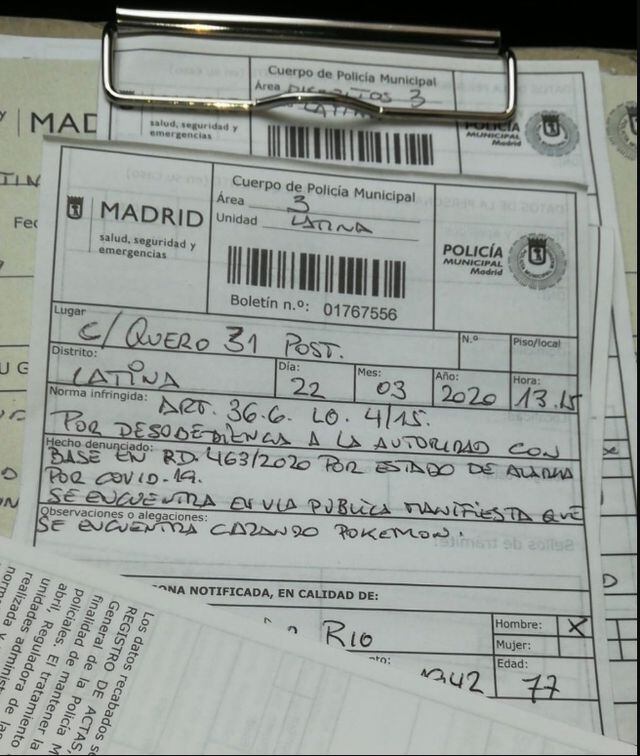 Cuerpo de Policía Municipal
Área DISTRITOS 3
LATINA
MAD
salud, seguridad y
emergencias
POLICÍA
MUNICIPAL
Madrid
Cuerpo de Policía Municipal
Área 3
Unidad LATINA
MADRID
salud, seguridad y
emergencias
POLICÍA
MUNICIPAL
Madrid
Boletín n.º: 01767556
Lugar
C/ QUERO 31 POST.
N.º
Piso/local
Distrito:
LATINA
Día:
22
Mes:
03
Año:
2020
Hora:
13.15
Norma infringida:
ART. 36.6. LO. 4/15.
POR DESOBEDIENCIA A LA AUTORIDAD CON
Hecho denunciado:
BASE EN RD. 463/2020 POR ESTADO DE ALARMA
POR COVID-19.
SE ENCUENTRA EN VIA PUBLICA MANIFIESTA QUE
Observaciones o alegaciones:
SE ENCUENTRA CAZANDO POKEMON.
ONA NOTIFICADA, EN CALIDAD DE:
RIO
Hombre: X
Mujer:
Edad:
77
Los datos recabados se
REGISTRO DE ACTAS
General de la Policía M
finalidad de mantener la
policiales. El tratamiento
abril, Reguladora de
unidades administra
realizada y